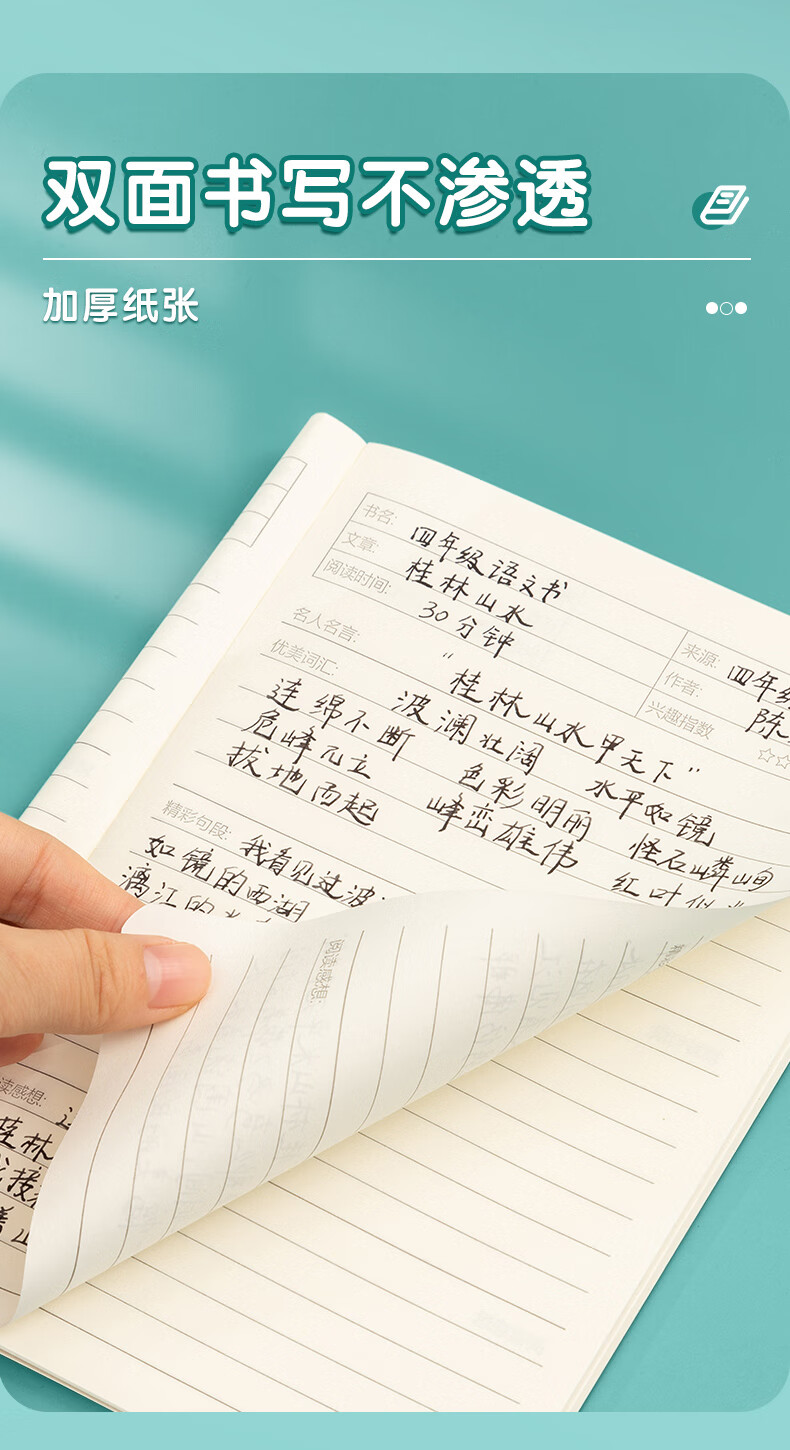 双面书写不渗透
加厚纸张
书名: 四年级语文书
文章: 桂林山水
阅读时间: 30分钟
来源: 四年级
作者: 陈
兴趣指数 ☆☆
名人名言: “桂林山水甲天下”
优美词汇:
连绵不断 波澜壮阔 水平如镜
危峰兀立 色彩明丽 怪石嶙峋
拔地而起 峰峦雄伟 红叶似
精彩句段: 我看见过波
如镜的西湖
漓江的水
阅读感想:
读感想:
桂林
接